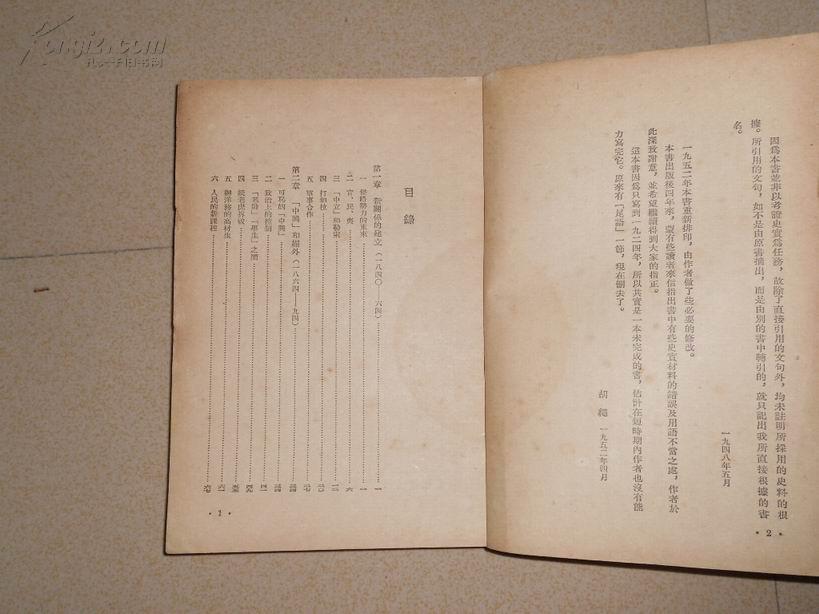 因爲本書並非以考證史實爲任務，故除了直接引用的文句外，均未註明所採用的史料的根
據。所引用的文句，如不是由原書摘出，而是由別的書中轉引的，就只記出我所直接根據的書
名。
一九四八年五月
一九五二年本書重新排印，由作者做了些必要的修改。
本書出版後四年來，蒙有些讀者來信指出書中有些史實材料的錯誤及用語不當之處，作者於
此深致謝意，並希望繼續得到大家的指正。
這本書因爲只寫到一九二四年，所以其實是一本未完成的書，估計在短時期內作者也沒有能
力寫完它。原來有「尾語」一節，現在刪去了。
胡繩 一九五二年四月
• 2 •
目錄
第一章 新關係的建立（一八四〇—六四）
一 侵略勢力的重來
二 官、民、夷
三 「中立」和勒索
四 打和拉
五 軍事合作
第二章 「中興」和媚外（一八六四—九四）
一 可恥的「中興」
二 政治上的控制
三 「恩師」「學生」之間
五 辦洋務的高材生
六 人民的新課程
• 1 •
Kongfz.com
孔夫子旧书网